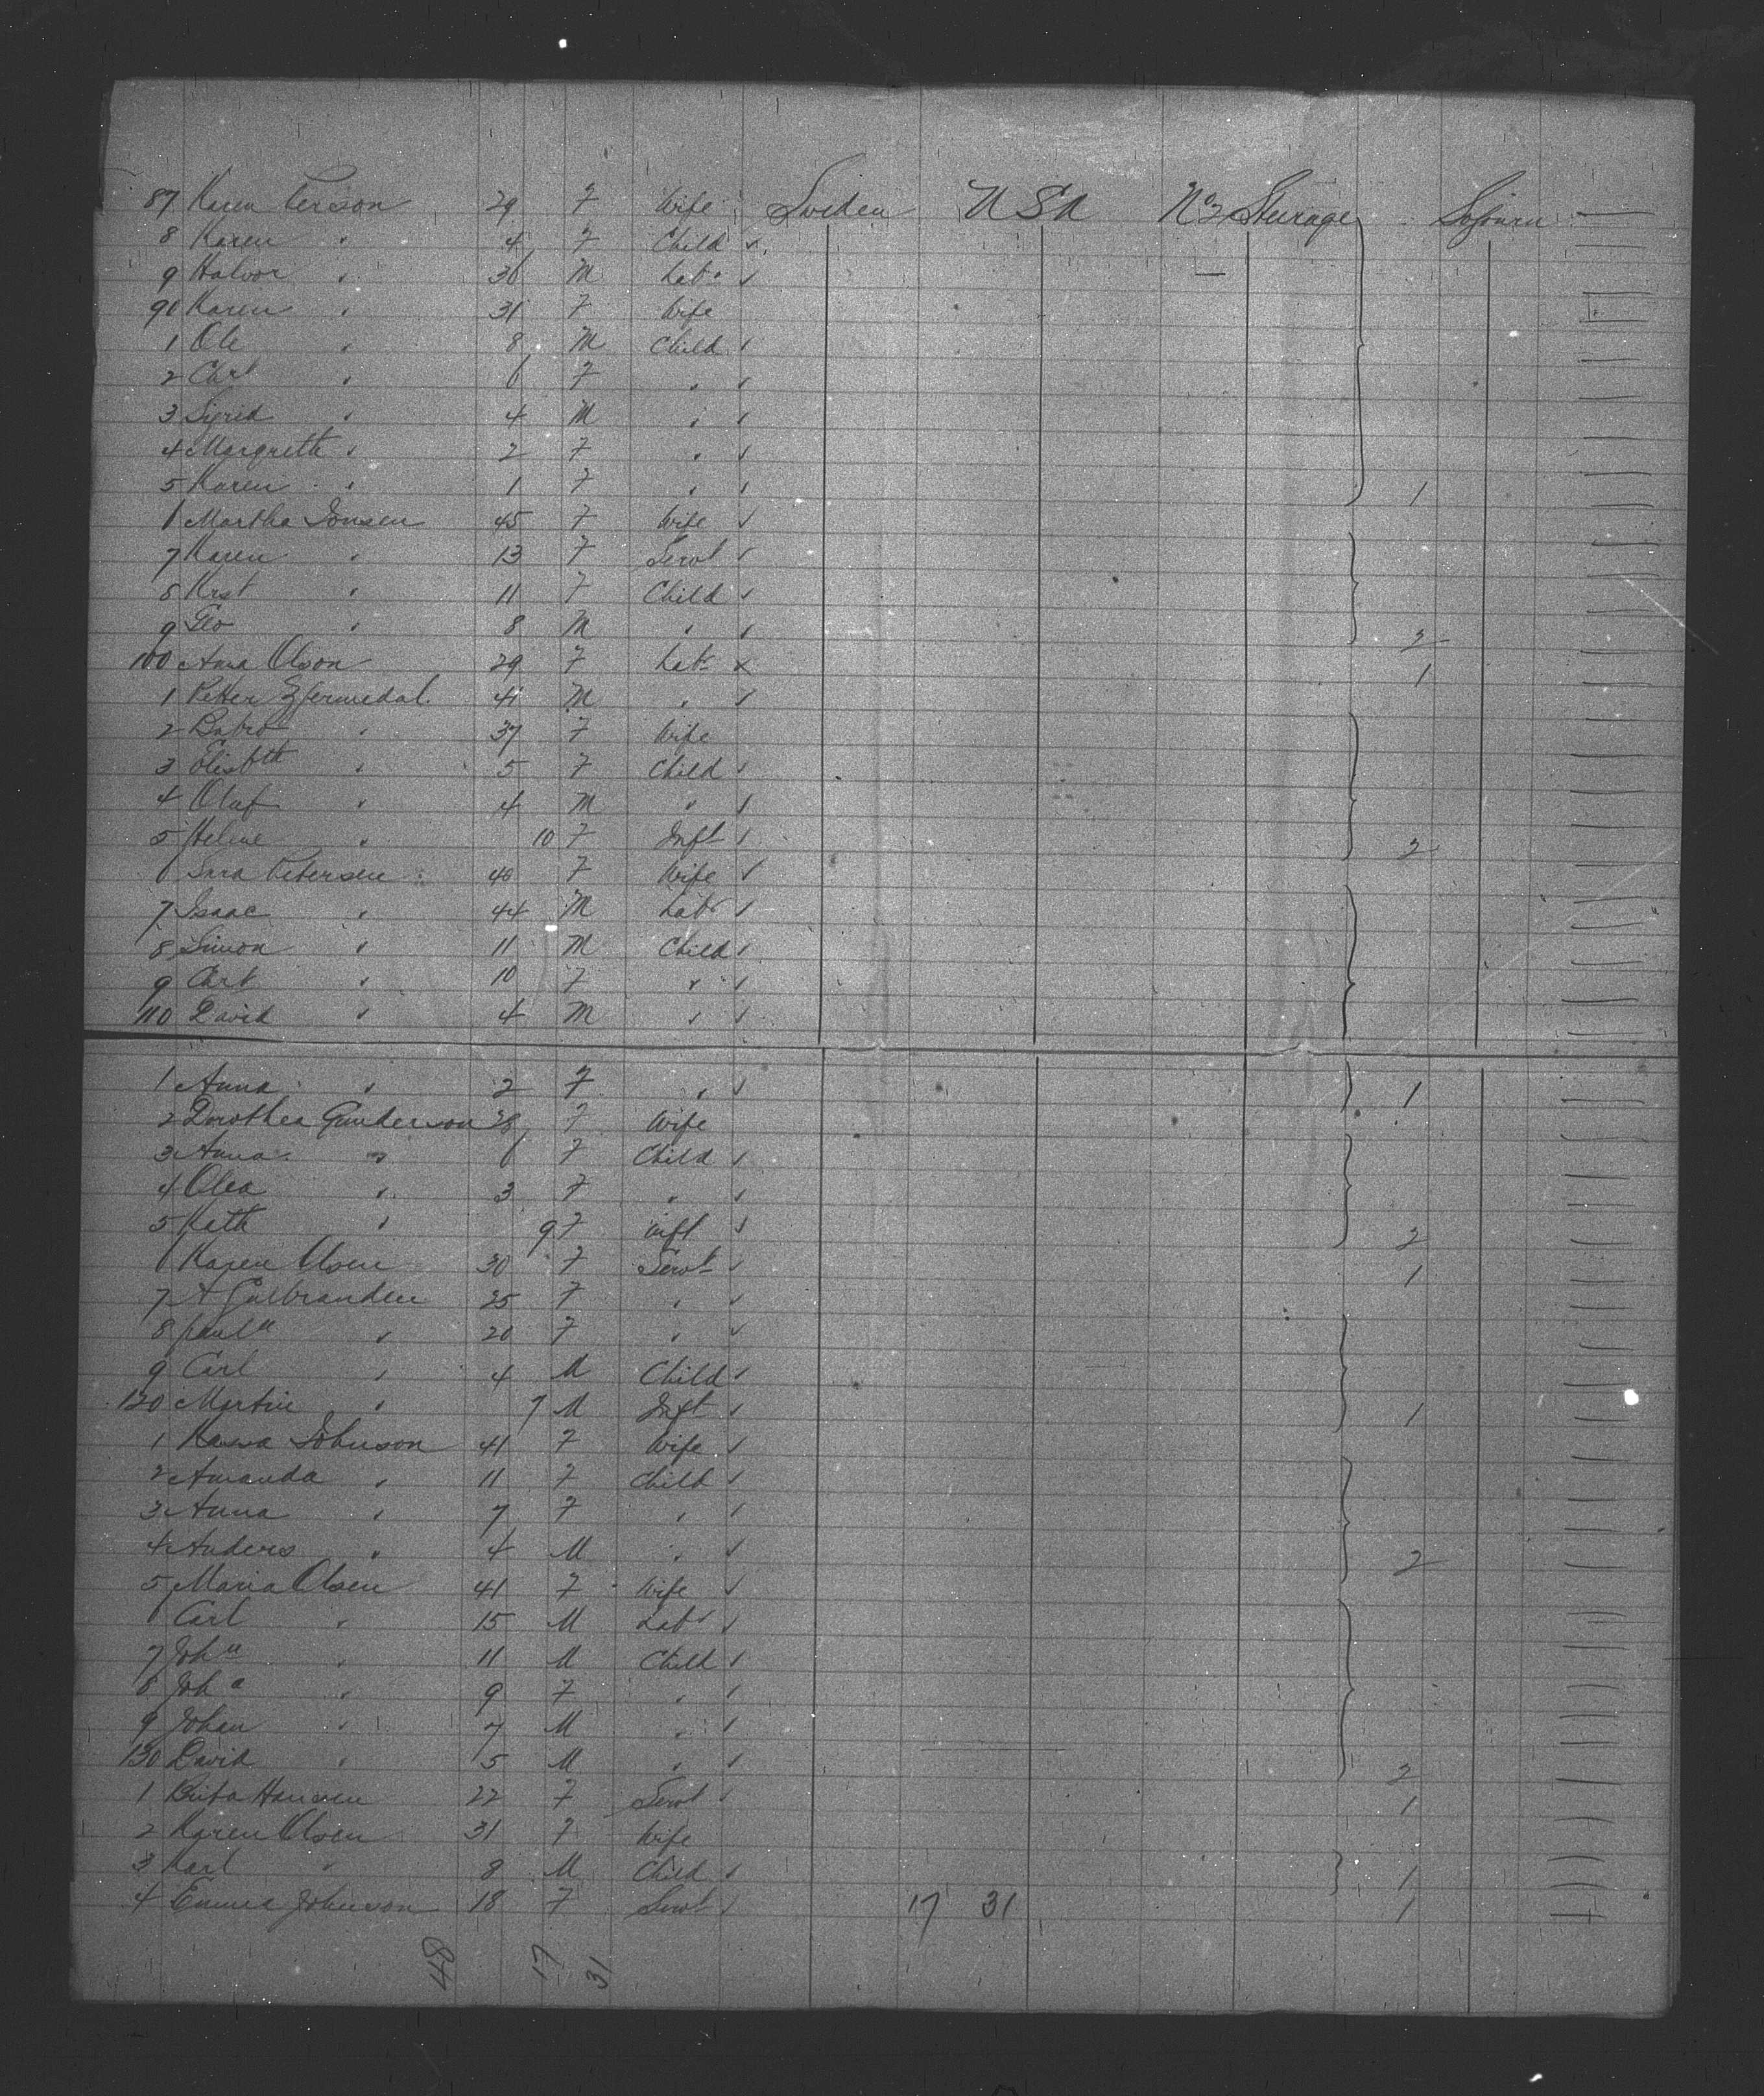 87 Karen Person 29 F Wife Sweden USA No 2 Steerage Sojourn
8 Karen " 4 F Child
9 Halvor " 36 M Labr
90 Karen " 31 F Wife
1 Ole " 8 M Child
2 Chrt " 6 F "
3 Sigrid " 4 M "
4 Margreth " 2 F "
5 Karen " 1 F " 1
6 Martha Jonsen 45 F Wife
7 Karen " 13 F Servt
8 Krst " 11 F Child
9 Geo " 8 M " 2
100 Anna Olson 29 F Labr 1
1 Petter 41 M "
2 " 37 F Wife
3 Elisbth " 5 F Child
4 Olaf " 4 M "
5 Helene " 10 F Inft 2
6 Sara Petersen 40 F Wife
7 Isaac " 44 M Labr
8 Simon " 11 M Child
9 Chrt " 10 F "
110 David " 4 M "
1 Anna " 2 F " 1
2 Dorothea Gunderson 28 F Wife
3 Anna " 6 F Child
4 Olea " 3 F "
5 Kath " 9 F Inft 2
6 Karen Olsen 30 F Servt 1
7 A Gulbranden 25 F "
8 Paula " 20 F "
9 Carl " 4 M Child
120 Martin " 7 M Inft 1
1 Johnson 41 F Wife
2 Amanda " 11 F Child
3 Anna " 7 F "
4 Anders " 4 M " 2
5 Maria Olsen 41 F Wife
6 Carl " 15 M Labr
7 John " 11 M Child
8 Joha " 9 F "
9 Johan " 7 M "
130 David " 5 M " 2
1 Brita Hansen 22 F Servt 1
2 Karen Olsen 31 F Wife
3 Karl " 8 M Child 1
4 Emma Johnson 18 F Servt 17 31 1
48 17 31